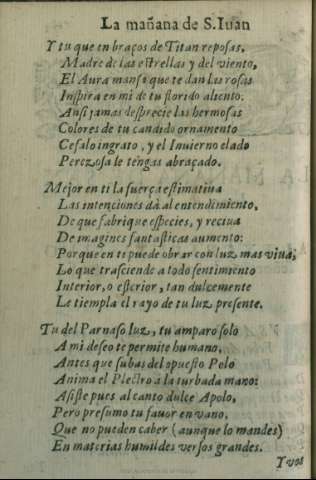 La mañana de S. Iuan
Y tu que en braços de Titan reposas,
Madre de las estrellas y del viento,
El Aura mansa que te dan las rosas
Inspira en mi de tu florido aliento:
Ansi jamas desprecie las hermosas
Colores de tu candido ornamento
Cefalo ingrato, y el Inuierno elado
Perezosa le tengas abraçado.
Mejor en ti la fuerça estimatiua
Las intenciones dà al entendimiento,
De que fabrique especies, y reciua
De imagines fantasticas aumento:
Porque en te puede obrar con luz mas viua,
Lo que trasciende a todo sentimiento
Interior, o esterior, tan dulcemente
Le tiempla el rayo de tu luz presente.
Tu del Parnaso luz, tu amparo solo
A mi deseo te permite humano,
Antes que subas del opuesto Polo
Anima el Plectro a la turbada mano:
Asiste pues al canto dulce Apolo,
Pero presumo tu fauor en vano,
Que no pueden caber (aunque lo mandes)
En materias humildes versos grandes.
Y vos